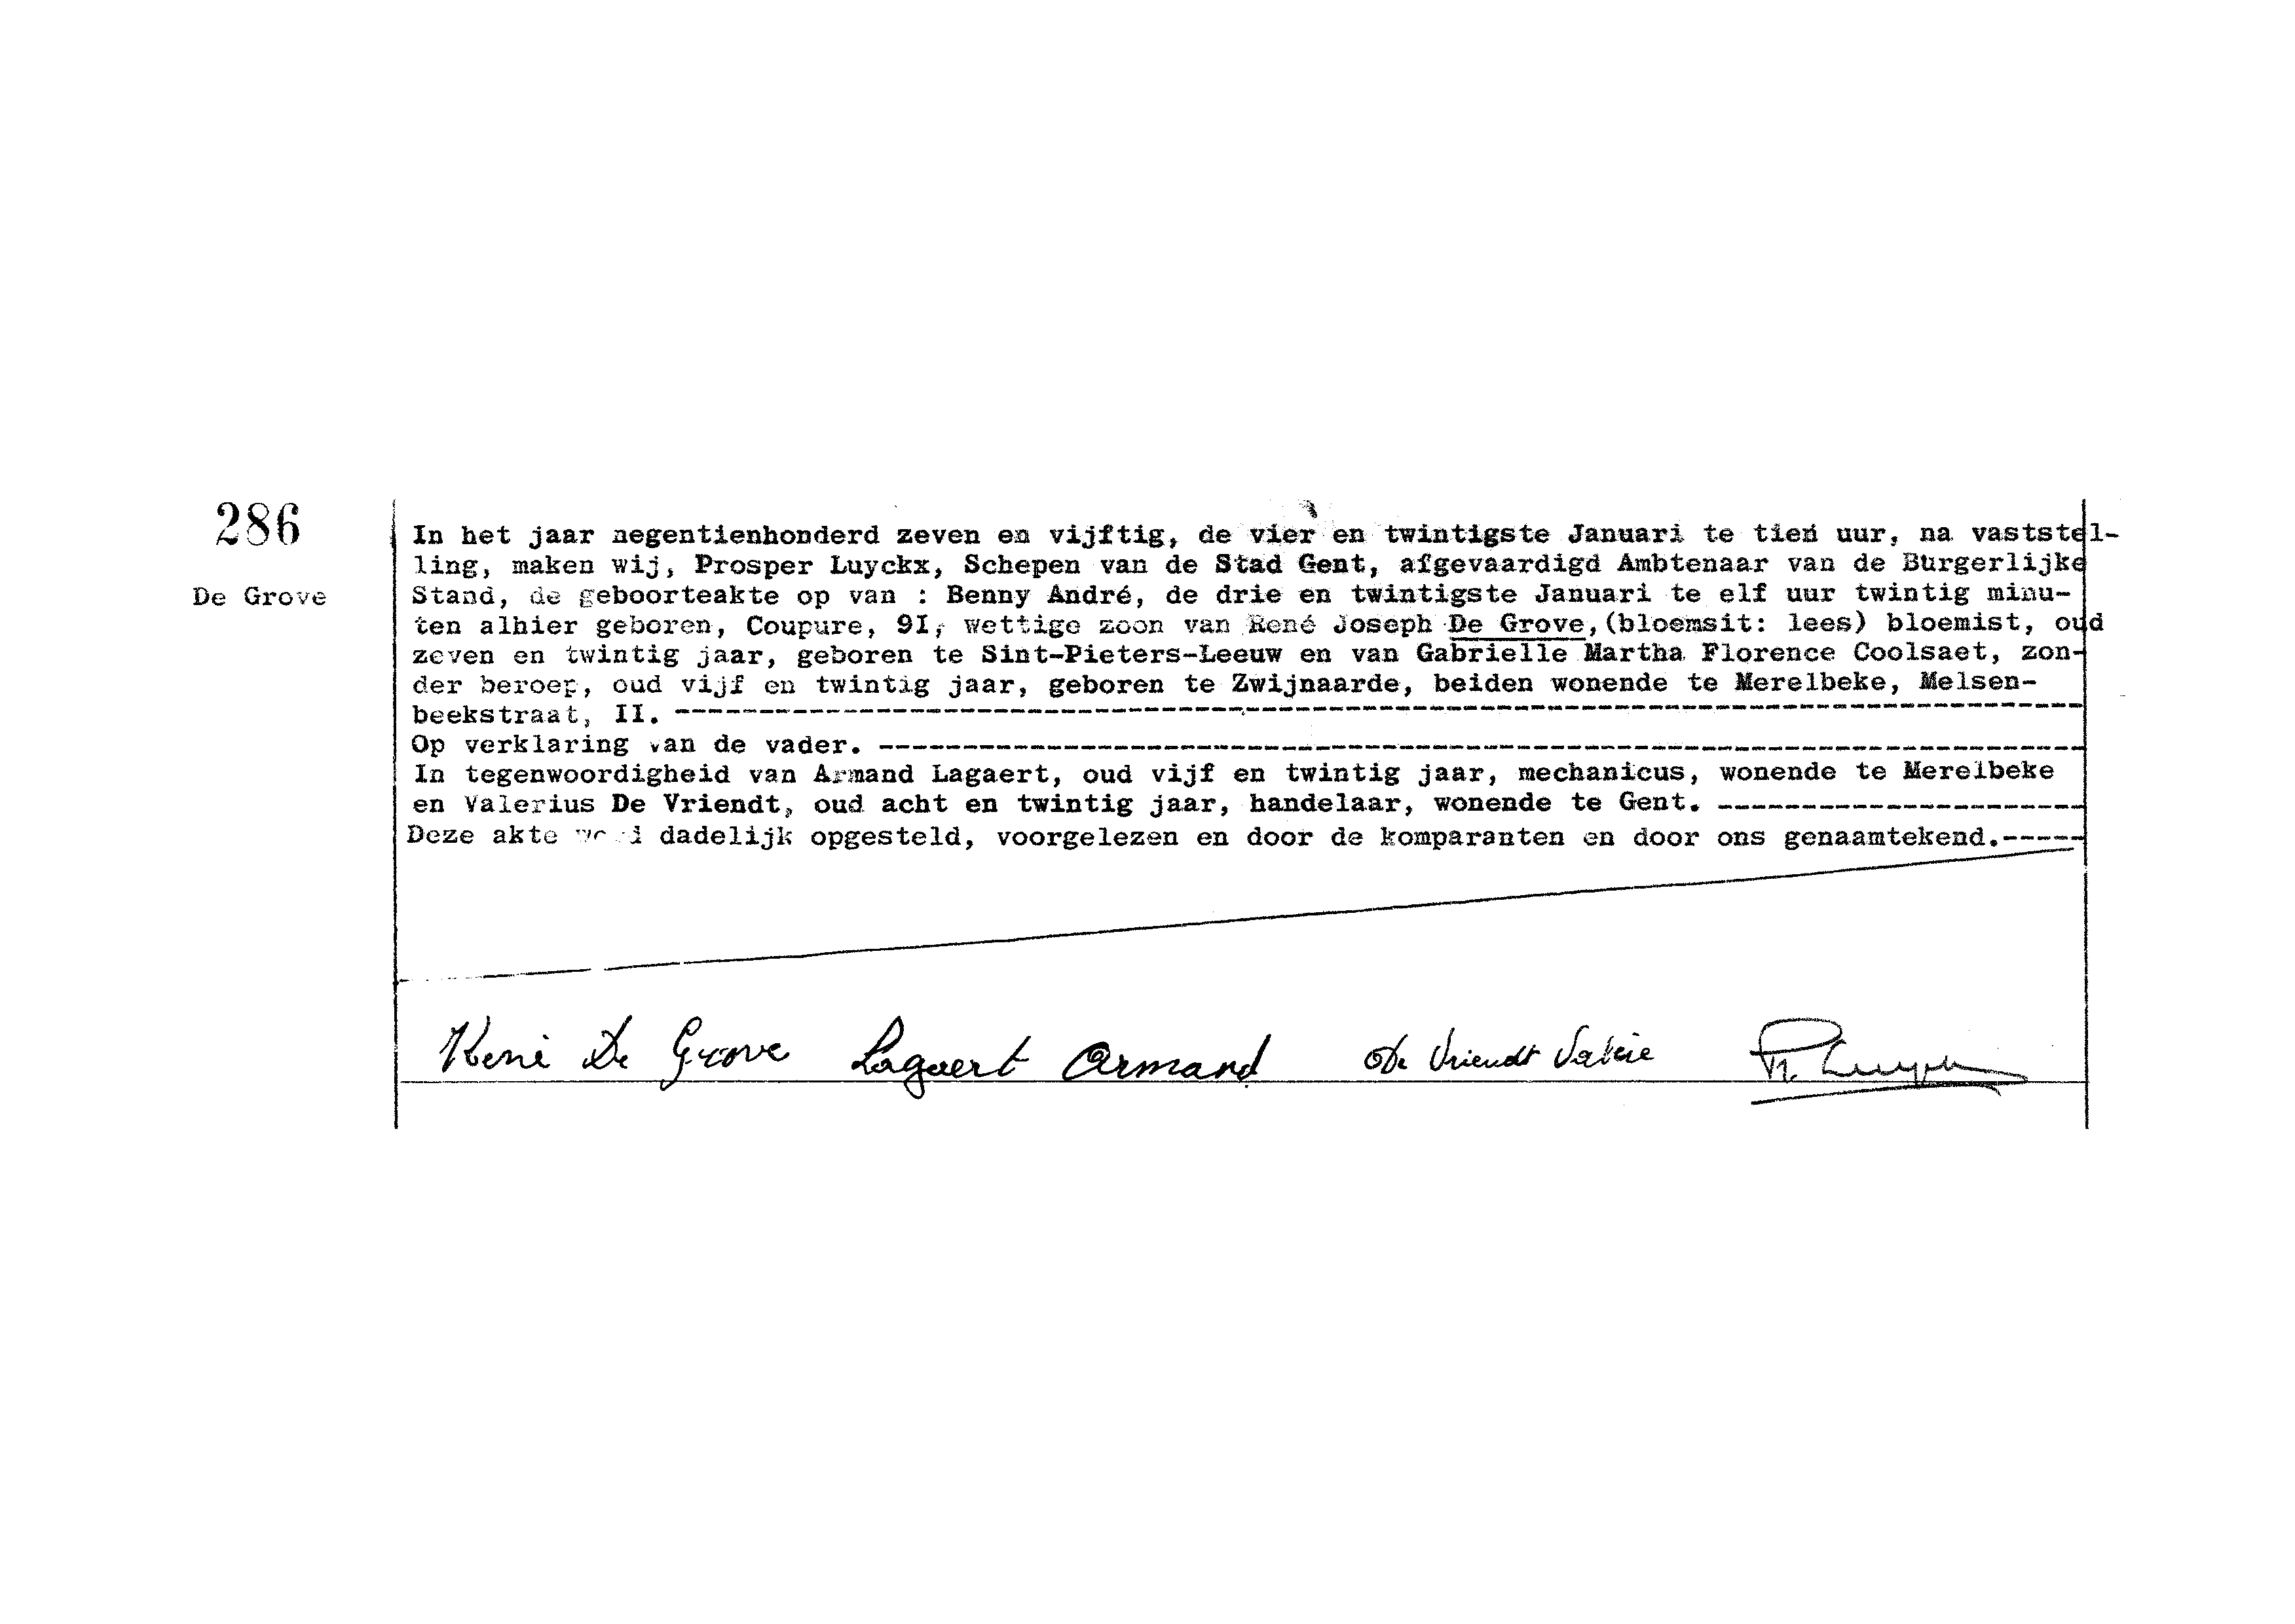 286
De Grove
In het jaar negentienhonderd zeven en vijftig, de vier en twintigste Januari te tien uur, na vaststel-
ling, maken wij, Prosper Luyckx, Schepen van de Stad Gent, afgevaardigd Ambtenaar van de Burgerlijke
Stand, de geboorteakte op van : Benny André, de drie en twintigste Januari te elf uur twintig minu-
ten alhier geboren, Coupure, 9I, wettige zoon van René Joseph De Grove, (bloemsit: lees) bloemist, oud
zeven en twintig jaar, geboren te Sint-Pieters-Leeuw en van Gabrielle Martha Florence Coolsaet, zon-
der beroep, oud vijf en twintig jaar, geboren te Zwijnaarde, beiden wonende te Merelbeke, Melsen-
beekstraat, II. ----------
Op verklaring van de vader. ----------
In tegenwoordigheid van Armand Lagaert, oud vijf en twintig jaar, mechanicus, wonende te Merelbeke
en Valerius De Vriendt, oud acht en twintig jaar, handelaar, wonende te Gent. ----------
Deze akte dadelijk opgesteld, voorgelezen en door de komparanten en door ons genaamtekend.-----
René De Grove Lagaert Armand De Vriendt Valérie Pr. Luyckx